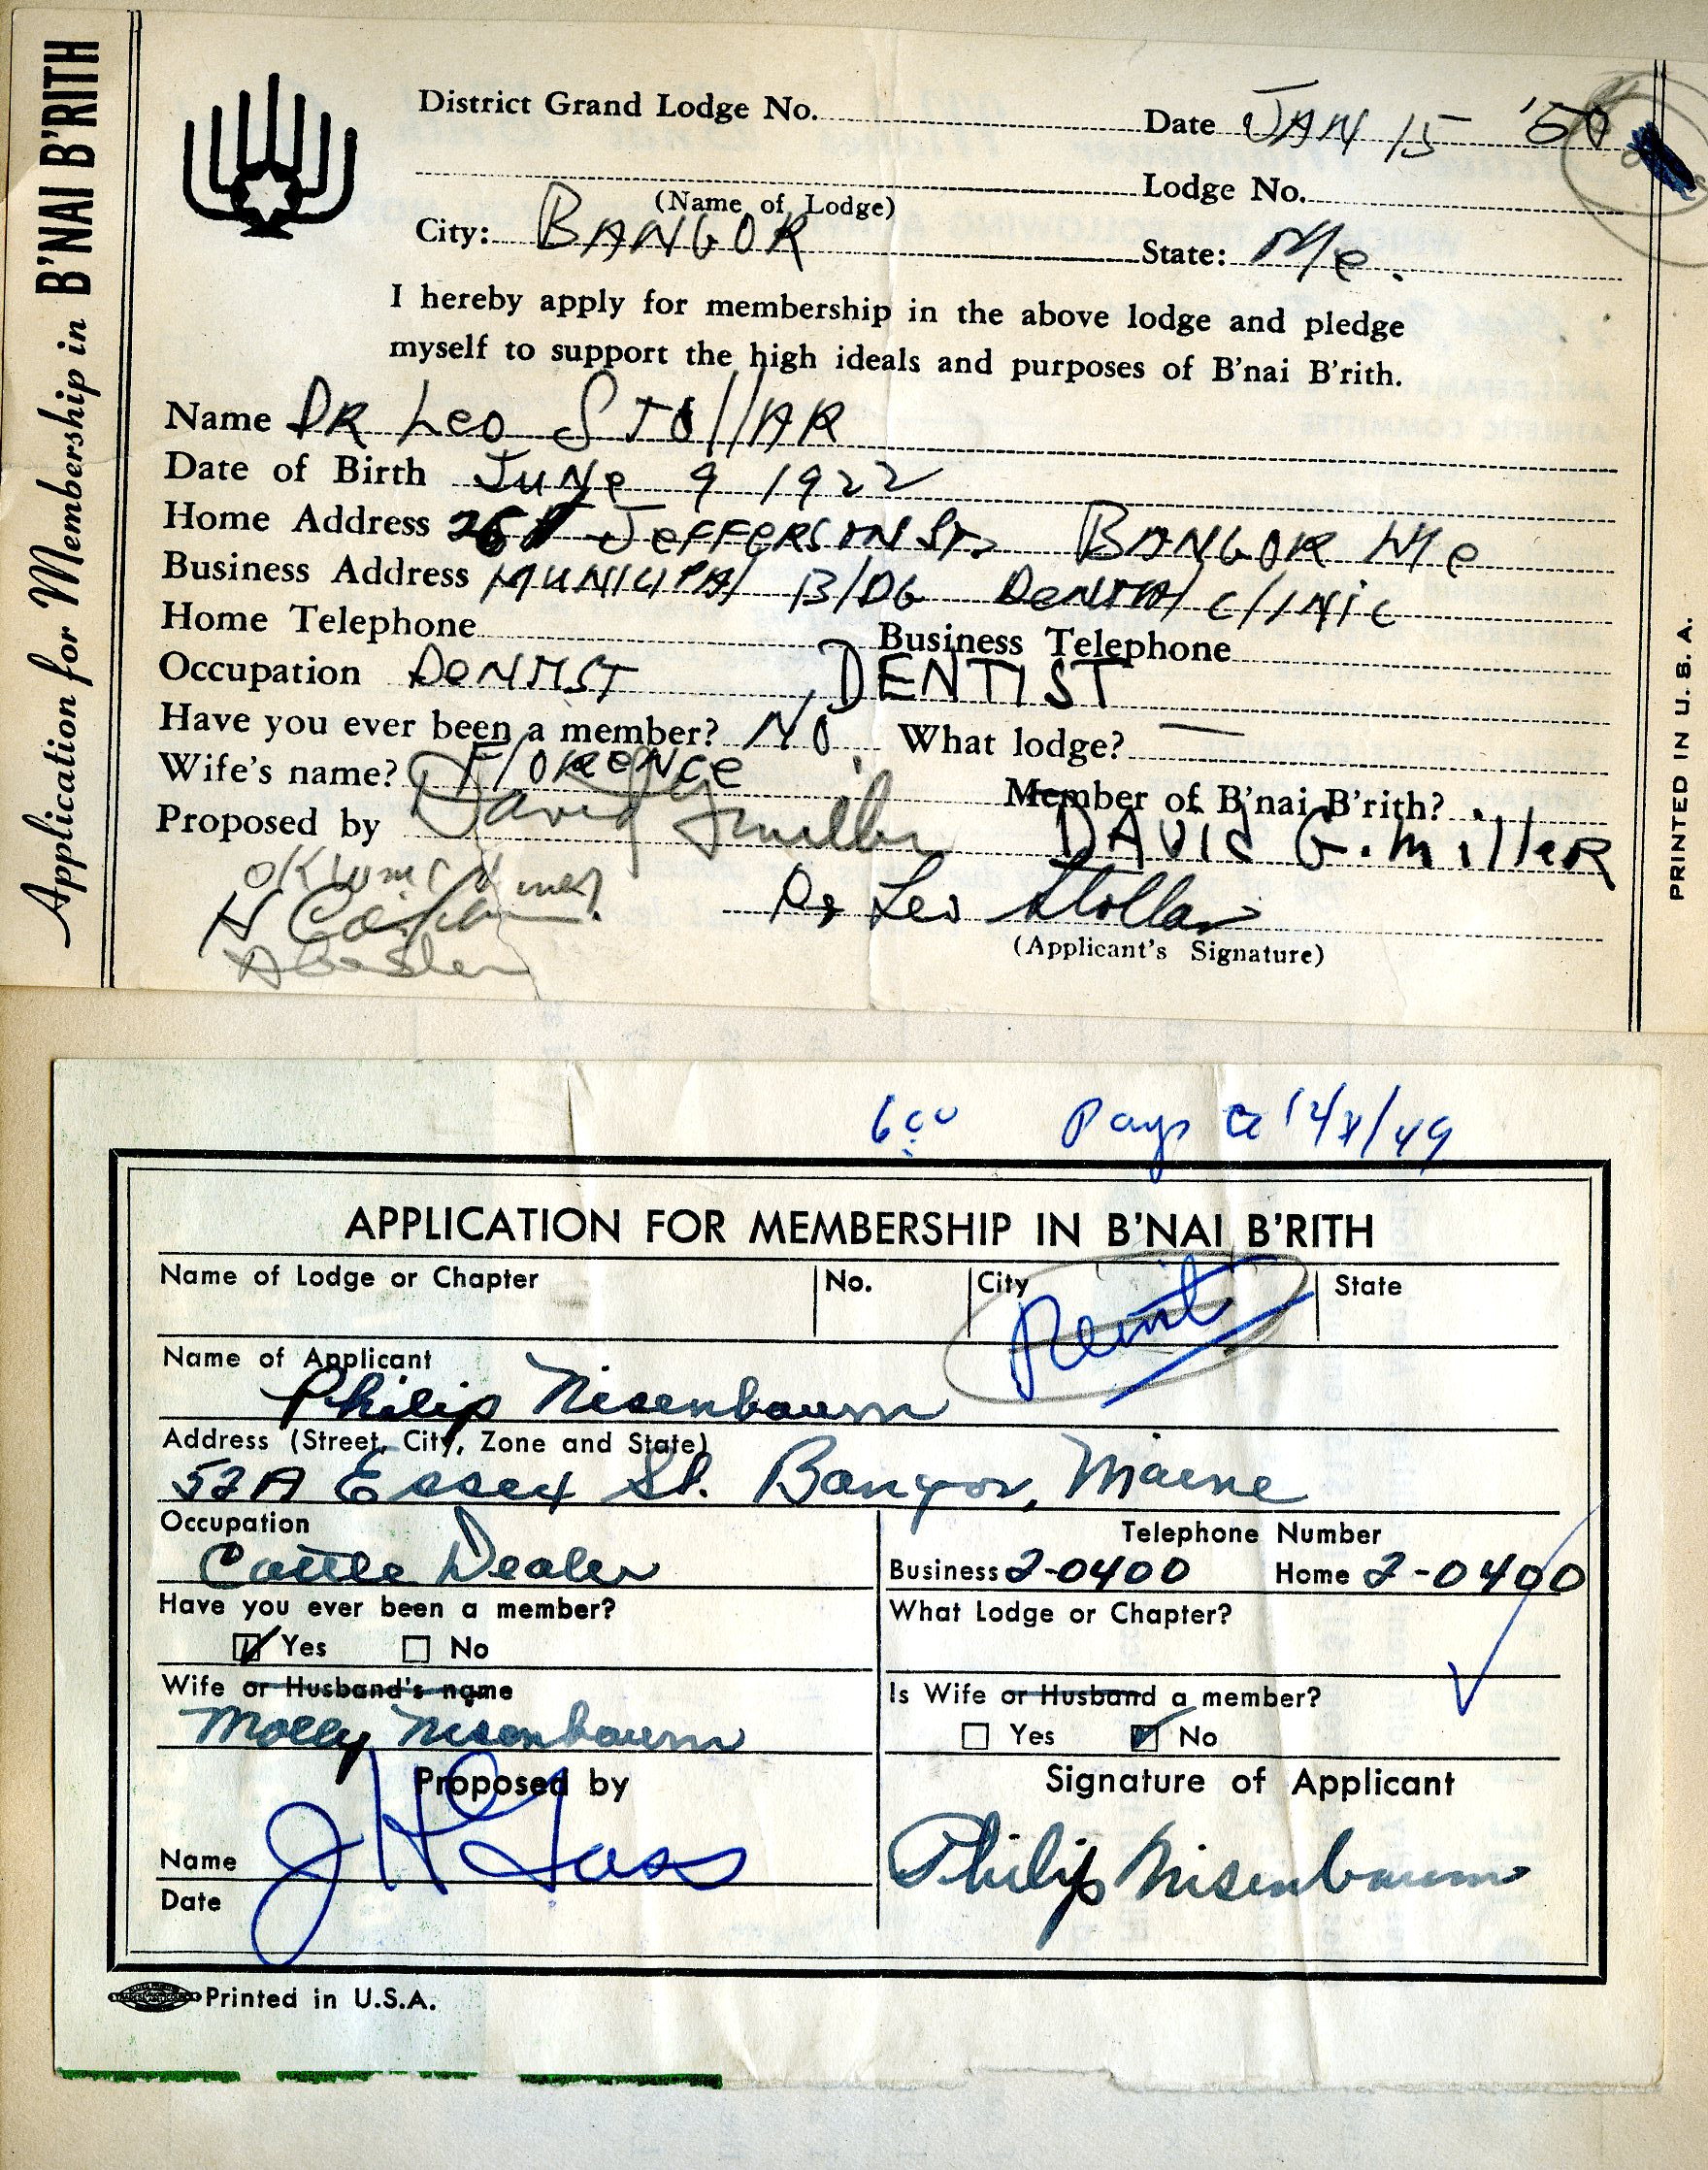 Application for Membership in B'NAI B'RITH
District Grand Lodge No. Date JAN 15 '50
(Name of Lodge) Lodge No.
City: BANGOR State: Me.
I hereby apply for membership in the above lodge and pledge
myself to support the high ideals and purposes of B'nai B'rith.
Name DR Leo STOllAR
Date of Birth JUNe 9 1922
Home Address JeFFERSON St. BANGOR Me
Business Address MUNICIPAl BlDG DeNTAl CliNic
Home Telephone Business Telephone
Occupation DeNTIST DENTIST
Have you ever been a member? NO. What lodge? —
Wife's name? FlOReNce Member of B'nai B'rith?
Proposed by David G Miller DAVId G. MilleR
Dr Leo Stollar
(Applicant's Signature)
PRINTED IN U. S. A.
6.00 Pays 12/8/49
APPLICATION FOR MEMBERSHIP IN B'NAI B'RITH
Name of Lodge or Chapter No. City State
Reinst
Name of Applicant
Philip Nisenbaum
Address (Street, City, Zone and State)
52A Essex St. Bangor, Maine
Occupation Telephone Number
Cattle Dealer Business 2-0400 Home 2-0400
Have you ever been a member? What Lodge or Chapter?
Yes No
Wife or Husband's name Is Wife or Husband a member?
Molly Nisenbaum Yes No
Proposed by Signature of Applicant
Name J H Gass Philip Nisenbaum
Date
Printed in U.S.A.